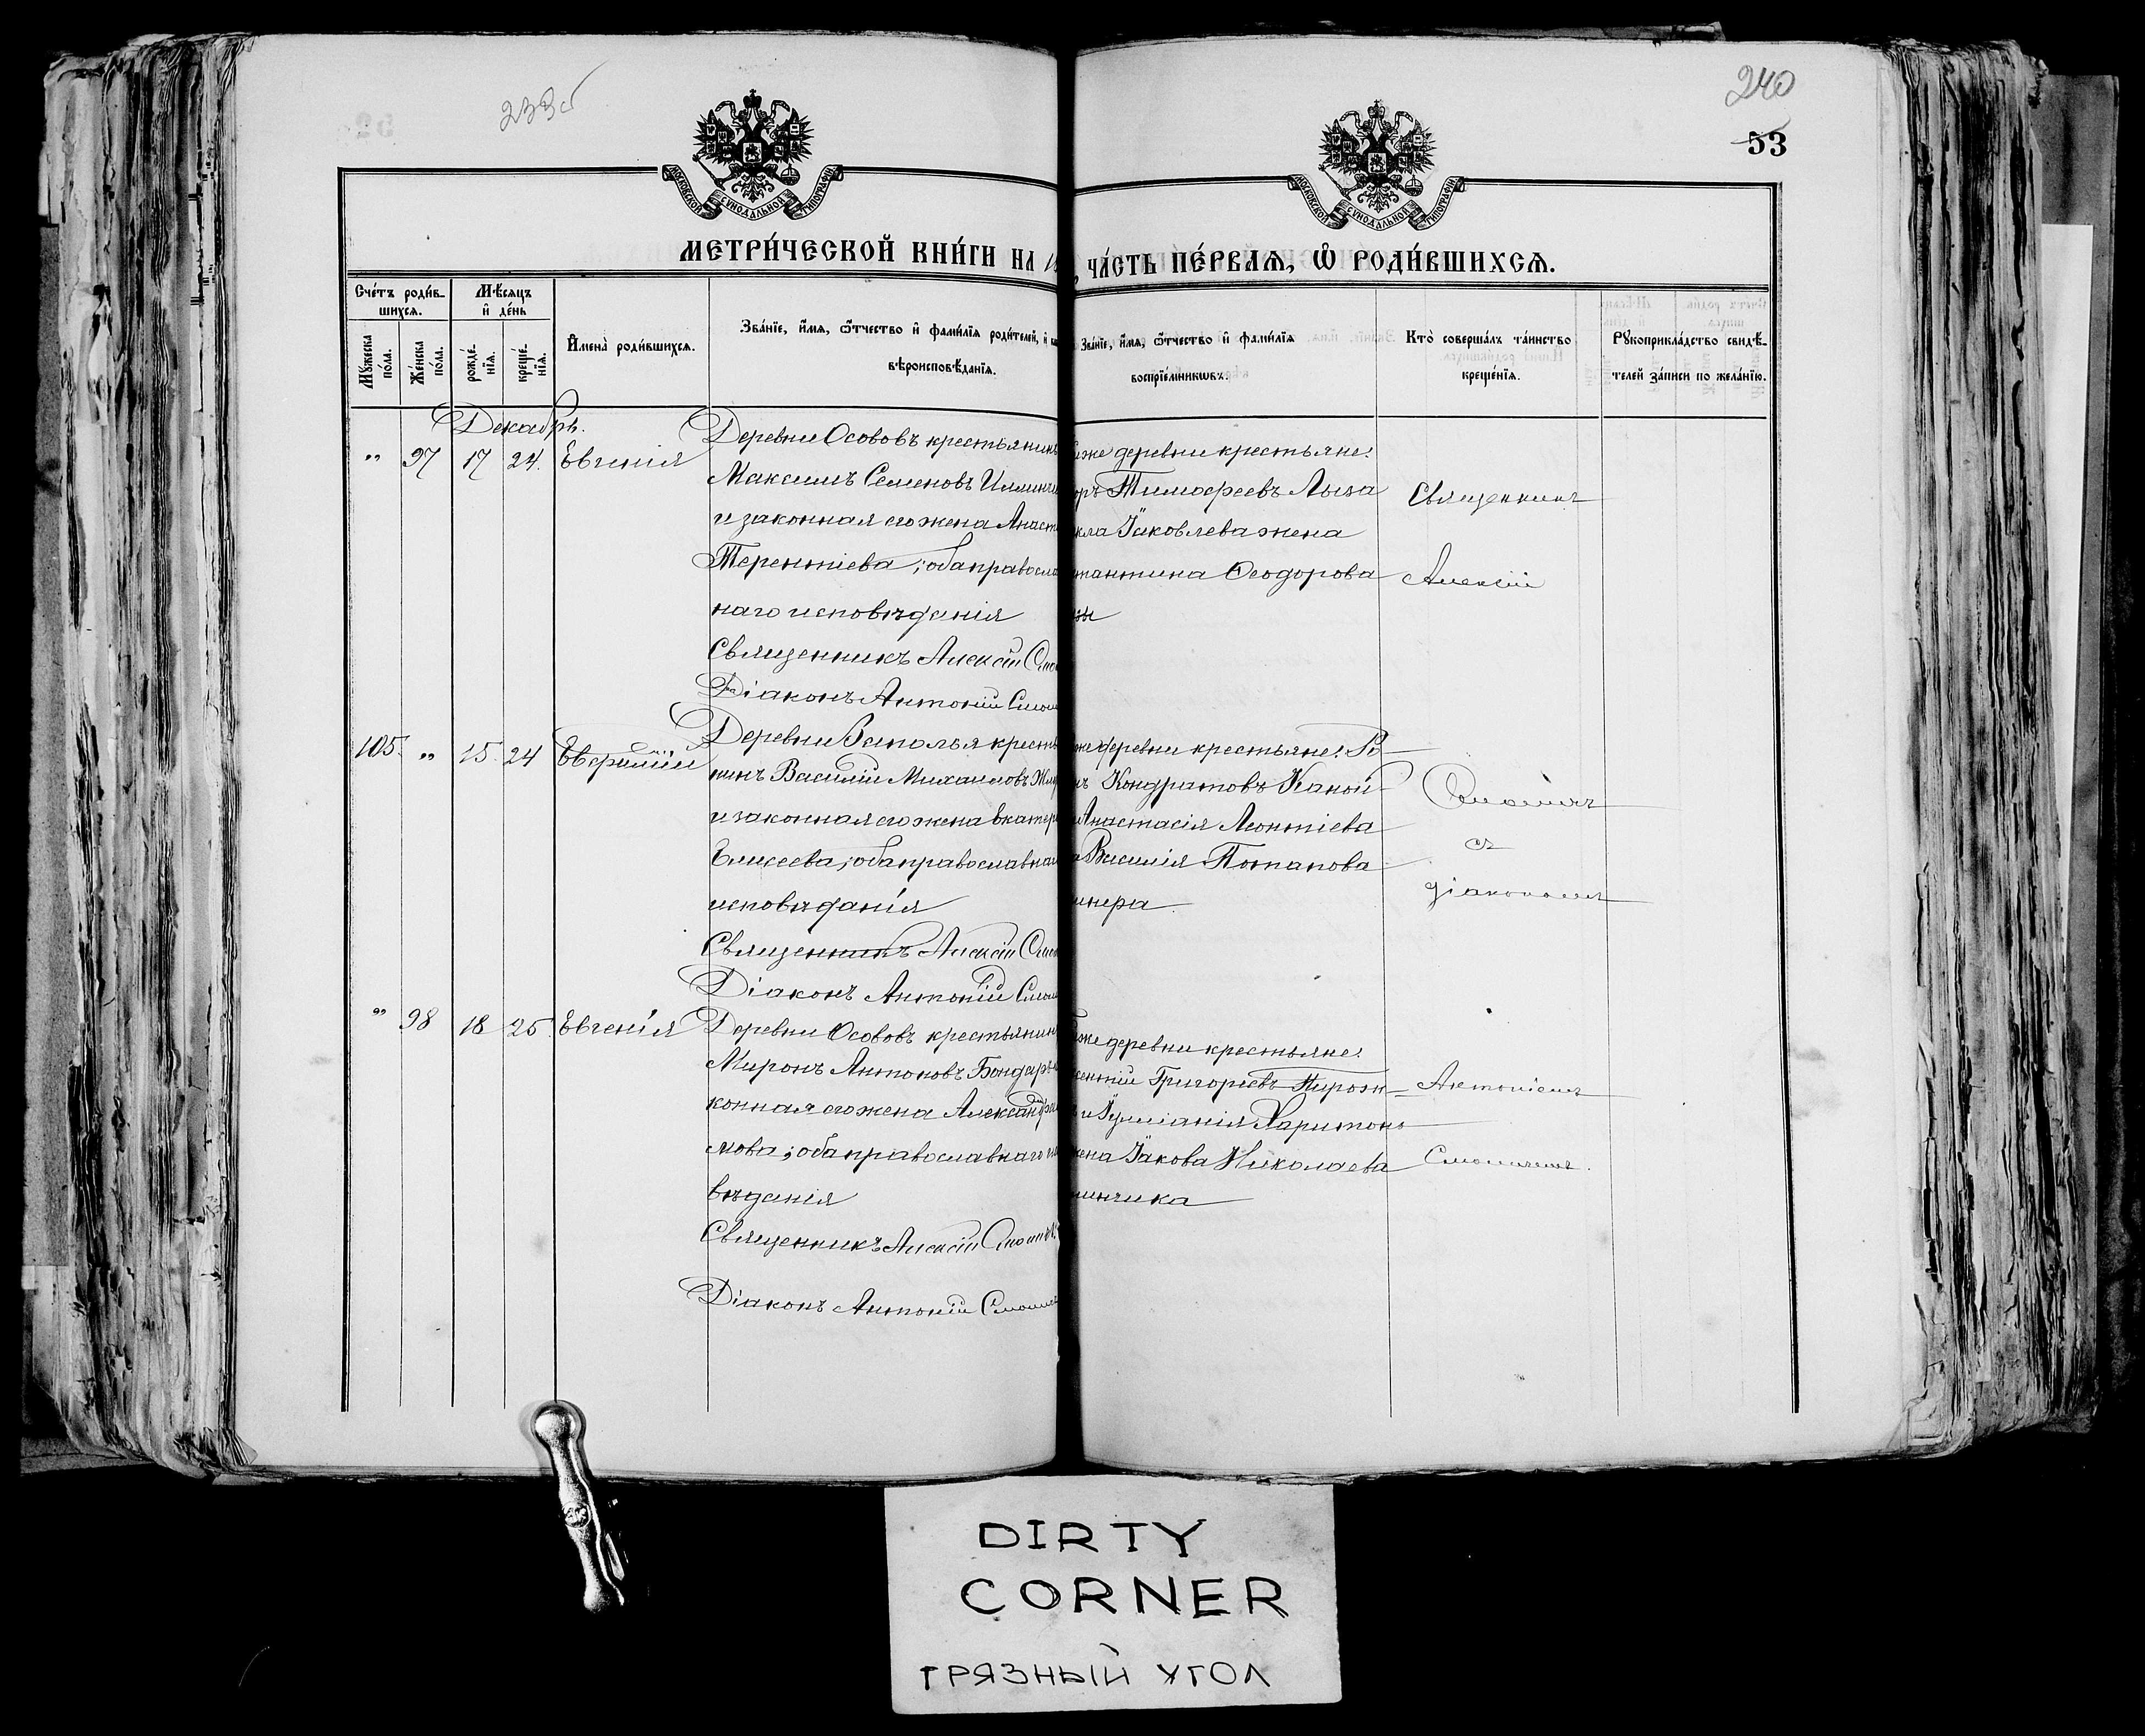 240
53
МОСКОВСКОЙ СѴНОДАЛЬНОЙ ТИПОГРАФІИ
МОСКОВСКОЙ СѴНОДАЛЬНОЙ ТИПОГРАФІИ
МЕТРИ́ЧЕСКОЙ КНИ́ГИ НА 18
ЧА́СТЬ ПЕ́РВАѦ, Ѽ РОДИ́ВШИХСѦ.
Сче́тъ роди́в-
шихсѧ.
Мꙋжеска по́ла.
Же́нска по́ла.
Мѣ́сѧцъ
и҆ де́нь
рожде́-
нїѧ.
креще́-
нїѧ.
И҆мена̀ роди́вшихсѧ.
Зва́нїе, и҆́мѧ, ѻ҆́тчество и҆ фами́лїѧ роди́телей, и҆
вѣроисповѣ́данїѧ.
Зва́нїе, и҆́мѧ, ѻ҆́тчество и҆ фами́лїѧ
воспрїе́мникѡвъ.
Кто̀ соверша́лъ та́инство
креще́нїѧ.
Рꙋкоприкла́дство свидѣ́-
телей за́писи по жела́нїю.
Декабрь.
„ 97 17 24. Евгенія
Деревни Осововъ крестьянинъ
Максимъ Семеновъ
и законная его жена Анаст
Терентіева; оба правосла
наго исповѣданія
Священникъ Алексій
Діаконъ Антоній
же деревни крестьяне:
оръ Тимофеевъ Лыза
кла Іаковлева жена
тантина Ѳеодорова
ны
Священникъ
Алексій
105. „ 15. 24 Евфимій
Деревни Заполья кресть
нинъ Василій Михаиловъ
и законная его жена Екатер
Елисеева; оба православна
исповѣданія
Священникъ Алексій
Діаконъ Антоній
же деревни крестьяне: Ро
нъ Кондратовъ Каной
Анастасія Леонтіева
а Василія Потапова
инера
съ
діакономъ
„ 98 18 25. Евгенія
Деревни Осововъ крестьянин
Миронъ Антоновъ Бондарь
конная его жена Александра
мова; оба православнаго
вѣданія
Священникъ Алексій
Діаконъ Антоній
же деревни крестьяне:
ентій Григоріевъ Пирож-
и Іуліанія Харитон
жена Іакова Николаева
инчика
Антоніемъ
DIRTY
CORNER
ГРЯЗНЫЙ УГОЛ